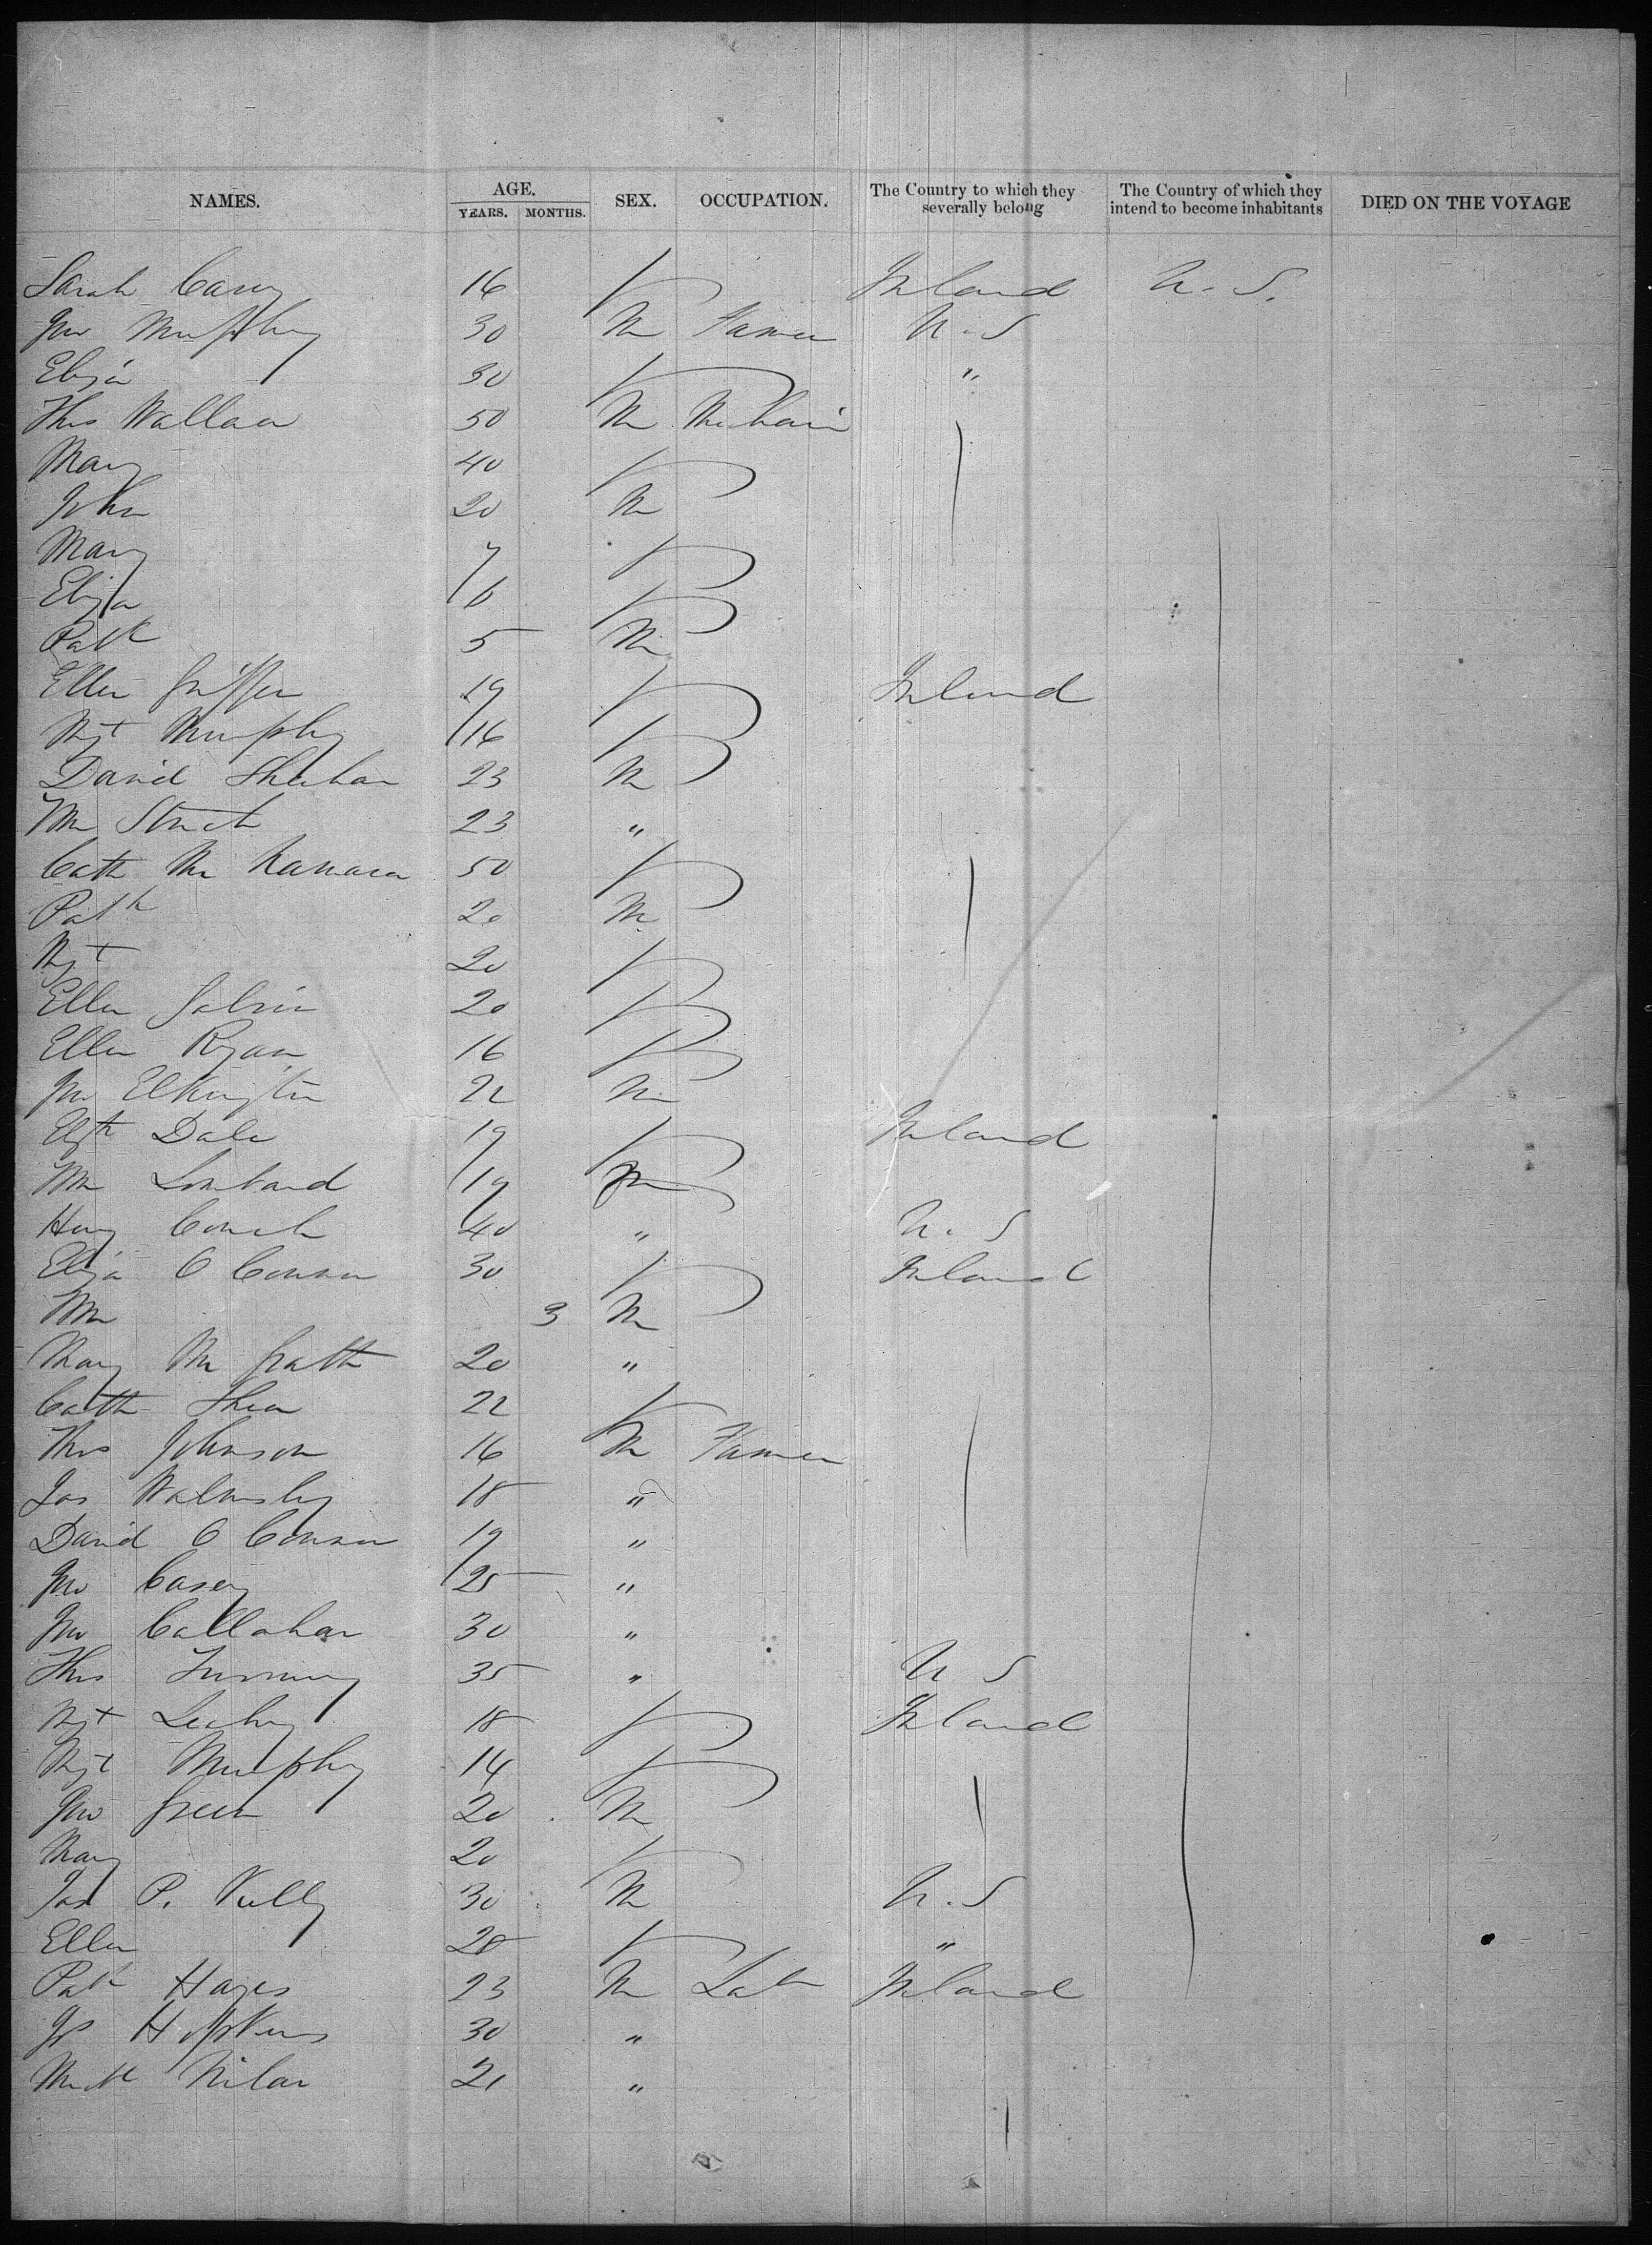 NAMES. AGE. YEARS. MONTHS. SEX. OCCUPATION. The Country to which they severally belong The Country of which they intend to become inhabitants DIED ON THE VOYAGE
Sarah Casey 16 Ireland U.S.
Jno Murphy 30 M Farmer U.S
Eliza 30 "
Thos Wallace 50 M Mechanic
Mary 40
John 20 M
Mary 7
Eliza 6
Patk 5 M
Ellen Griffen 19 Ireland
Mgt Murphy 16
David Sheehan 23 M
Wm 23 "
Cath McNamara 50
Patk 20 M
Mgt 20
Ellen Galvin 20
Ellen Ryan 16
Jno Elkington 22 M
Elzth Dale 19 Ireland
Wm Lombard 19 M
Hy 40 " U.S
Eliza O Connor 30 Ireland
Wm 3 M
Mary McGrath 20 "
Cath Shea 22
Thos Johnson 16 M Farmer
Jas Walmsley 18 "
David O Connor 19 "
Jno Casey 25 "
Jno Callahan 30 "
Thos 35 " U S
Mgt Leahy 18 Ireland
Mgt Murphy 14
Jno Green 20 M
Mary 20
Jas P. Kelly 30 M U.S
Ellen 28 "
Patk Hayes 23 M Labr Ireland
Jos Hopkins 30 "
21 "